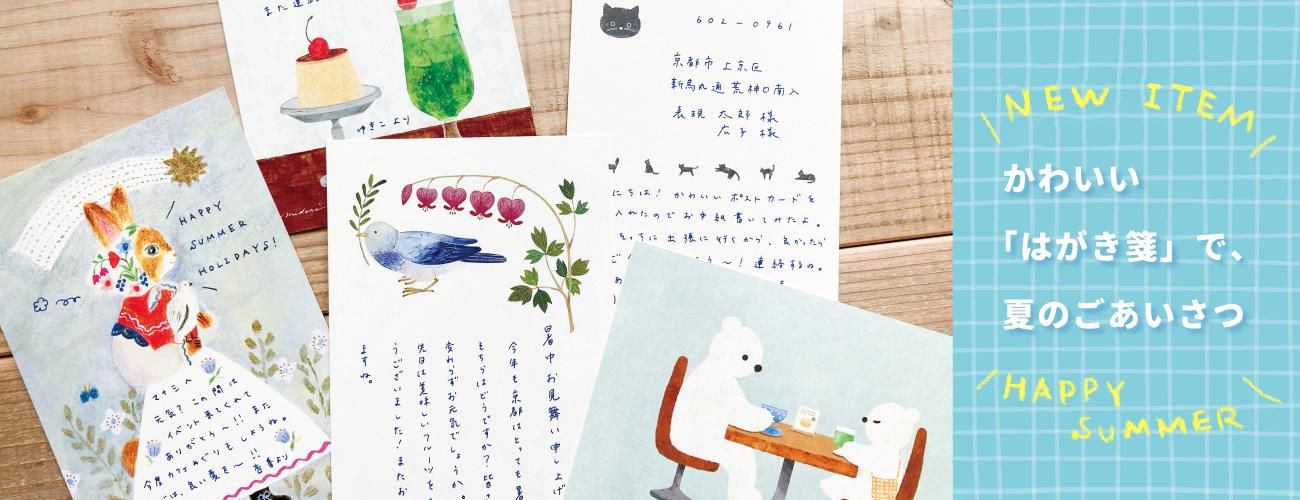 また連
ゆきこ より
midori
HAPPY
SUMMER
HOLIDAYS!
マナミへ
元気? この間は
イベント来てくれて
ありがとう〜!! また
今度カフェめぐりもしようね。
では、良い夏を〜!! 杏香より
暑中お見舞い申し上げ
今年も京都はとっても暑
そちらはどうですか? 皆さ
変わらずお元気でしょうか。
先日は美味しいフルーツを
うございました! またお
ますね。
602-0961
京都市 上京区
新烏丸通 荒神口南入
表現 太郎 様
広子 様
にちは! かわいい ポストカードを
入れたので お手紙書いてみたよ。
そっちに 出張に 行くから、良かったら
う〜! 連絡するね。
NEW ITEM
かわいい
「はがき箋」で、
夏のごあいさつ
HAPPY
SUMMER